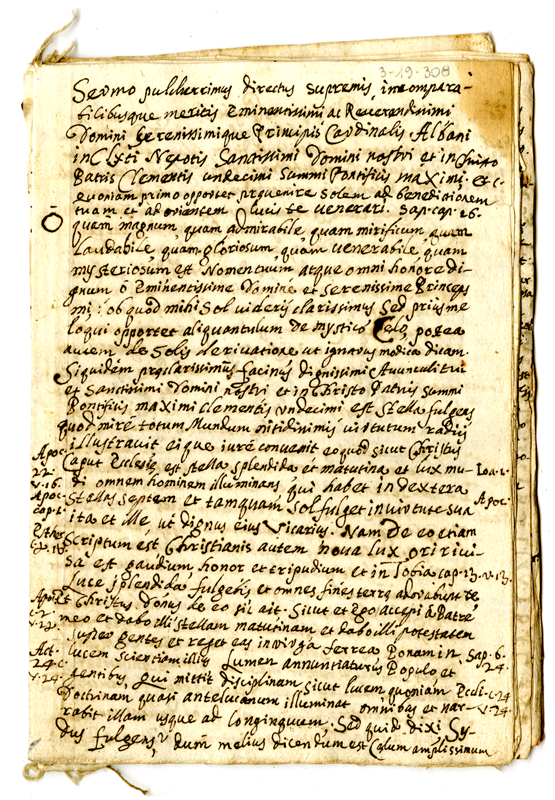 3-19-308
Sermo pulcherrimus directus supremis, incompara-
bilibusque meritis Eminentissimi ac Reverendissimi
Domini Serenissimique Principis Cardinalis Albani
inclyti Nepotis Sanctissimi Domini nostri et in Christo
Patris Clementis undecimi Summi Pontificis maximi, et c.
Quoniam primo oportet prævenire Solem ad benedictionem
tuam et ad orientem lucis te venerari. Sap. cap. 16.
quam magnum, quam admirabile quam mirificum, quam
Laudabile, quam gloriosum, quam venerabile, quam
mysteriosum est Nomen tuum atque omni honore di-
gnum ô Eminentissime Domine et Serenissime Princeps
mi: ob quod mihi Sol videris clarissimus Sed prius me
loqui opportet aliquantulum de mystico Celo, postea
autem de Solis derivatione ut ignarus modica dicam.
Siquidem præclarissimus facinus dignissimi Avunculi tui
et Sanctissimi Domini nostri et in Christo Patris Summi
Pontificis maximi Clementis undecimi est Stella fulgens
quod mire totum Mundum nitidissimis virtutum radiis
illustravit eique iure convenit eo quod sicut Christus
Apoc. 22. v. 16. Caput Ecclesiæ est stella splendida et matutina et lux mu- Ioa. 1.
di omnem hominem illuminans qui habet in dextera
Apoc. cap. 1. Stellas Septem et tamquam Sol fulget in virtute sua Apoc.
ita et ille, ut dignus eius Vicarius. Nam De eo etiam
Esther Scriptum est Christianis autem nova lux oriri vi-
sa est gaudium honor et tripudium et in Tobia cap. 13. v. 13.
Luce splendida fulgebis et omnes fines terræ adorabunt te
Apoc. 2. Et Christus Dnus de eo sic ait. Sicut et Ego accepi à Patre
meo et dabo illi stellam matutinam et dabo illi potestatem
super gentes et reget eas in virga ferrea Bonam in Sap. 6. v. 24.
Act. 24. v. 24. lucem scientiam illius Lumen annuntiaturus Populo et
gentibus qui mittit disciplinam sicut lucem quoniam Eccli. c. 24
Doctrinam quasi antelucanum illuminat omnibus et nar- v. 24
rabit illam usque ad longinquum. Sed quid dixi Sy-
dus fulgens? dum melius dicendum est Cælum amplissimum